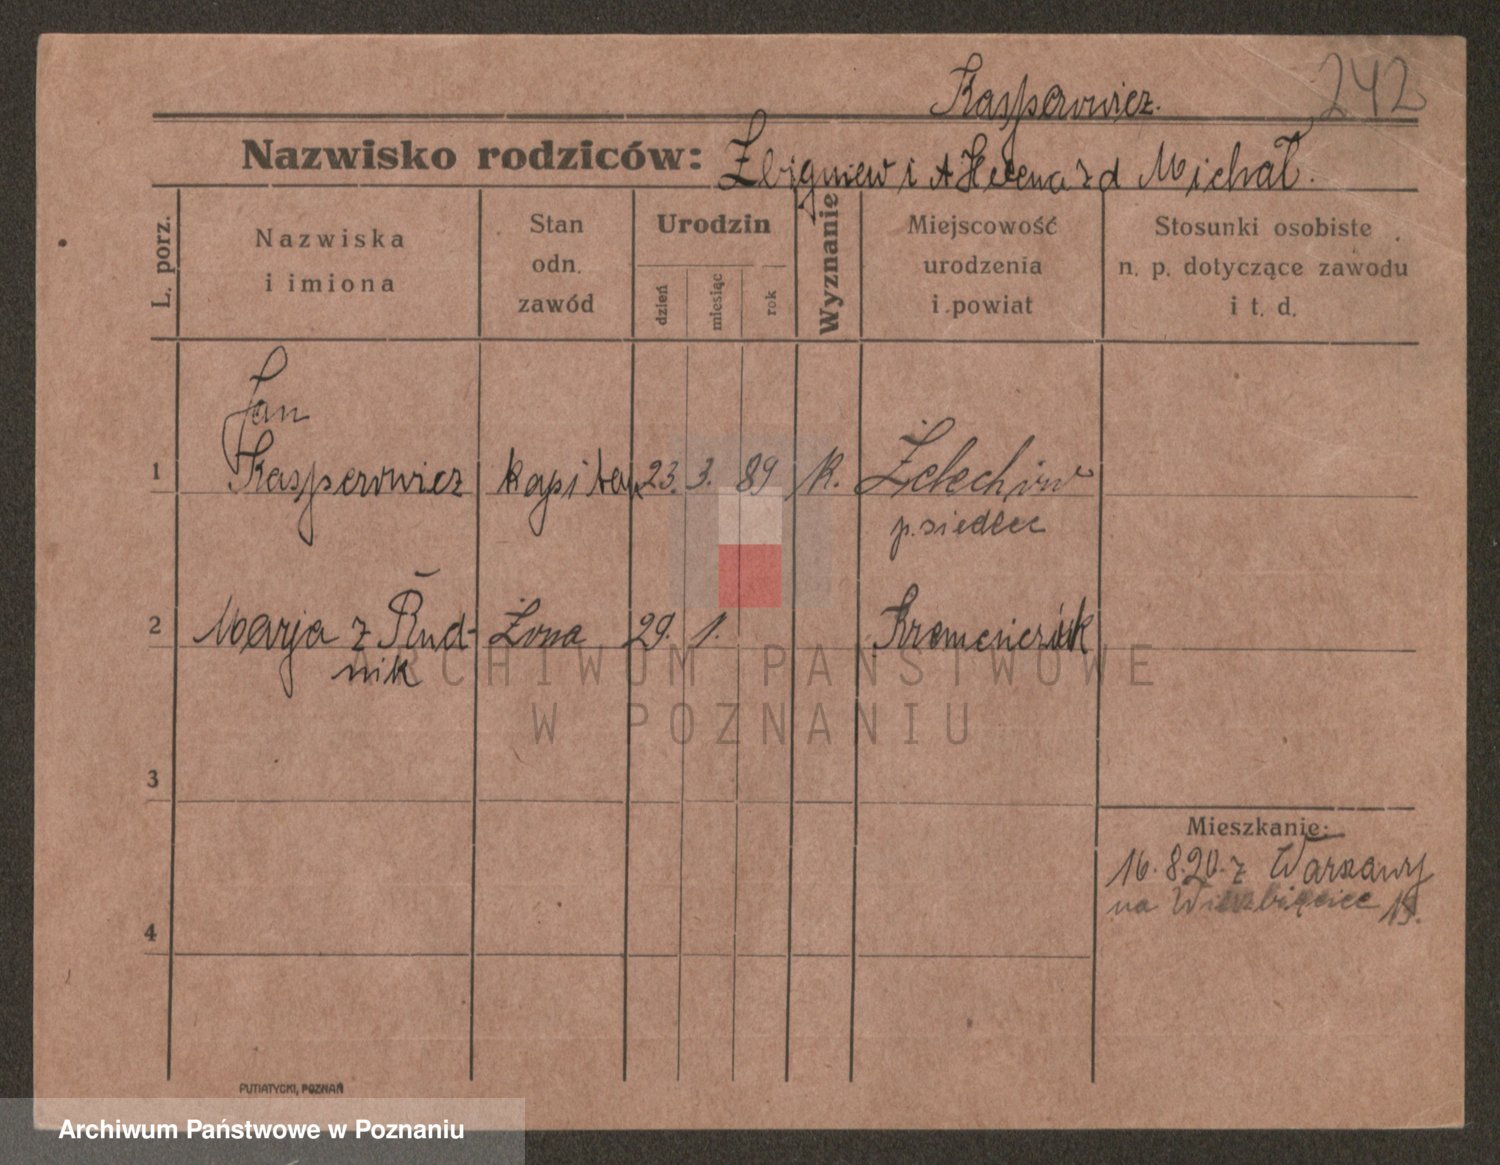 Kasperowicz.
242
Nazwisko rodziców: Zbigniew i A Helena z d Michał.
L. porz.
Nazwiska
i imiona
Stan
odn.
zawód
Urodzin
dzień
miesiąc
rok
Wyznanie
Miejscowość
urodzenia
i powiat
Stosunki osobiste
n. p. dotyczące zawodu
i t. d.
Jan
1 Kasperowicz kapitan 23. 3. 89 K. Żelechów
p. siedlec
2 Marja z Rud- Żona 29. 1.
nik
3
Mieszkanie:
16. 8. 20. z Warszawy
na 15.
4
PUTIATYCKI, POZNAŃ
ARCHIWUM PAŃSTWOWE
W POZNANIU
Archiwum Państwowe w Poznaniu